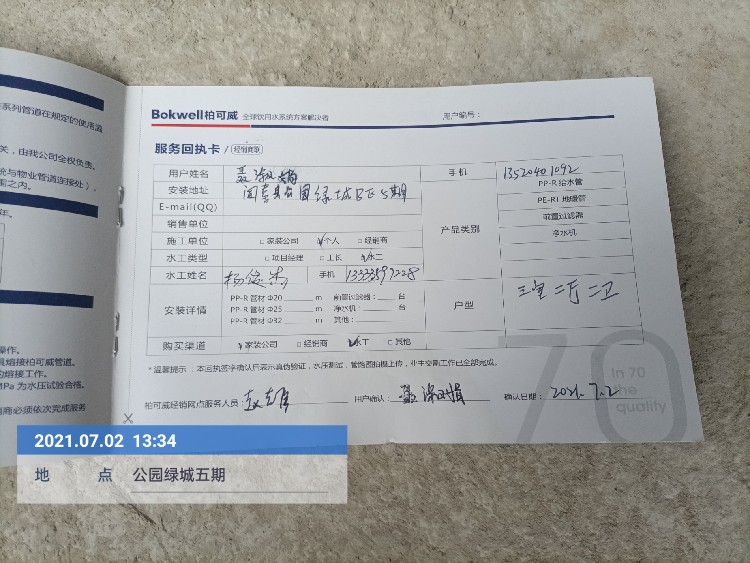 系列管道在规定的使用温
关，由我公司全权负责。
统与物业管道连接处），
围之内。
年。
操作。
具熔接柏可威管道。
的熔接工作。
MPa 为水压试验合格。
销商必须依次完成服务
Bokwell柏可威 全球饮用水系统方案解决者
用户编号：
服务回执卡 / 经销商联
用户姓名
手机 13520401092
安装地址 公园绿城 5期
E-mail(QQ)
销售单位
产品类别
PP-R 给水管
PE-RT 地暖管
前置过滤器
净水机
施工单位 □家装公司 ☑个人 □经销商
水工类型 □项目经理 □工长 ☑水工
水工姓名 杨俊杰 手机 13333597228
安装详情
PP-R 管材 Φ20 m 前置过滤器： 台
PP-R 管材 Φ25 m 净水机： 台
PP-R 管材 Φ32 m 其他：
户型 三室二厅二卫
购买渠道 ☑家装公司 □经销商 ☑水工 □其他
*温馨提示：本回执签字确认后表示真伪验证，水压测试，管路图拍摄上传，业主交底工作已全部完成。
柏可威经销网点服务人员：
用户确认：
确认日期： 2021.7.2
70
In 70
the
quality
2021.07.02 13:34
地 点 公园绿城五期